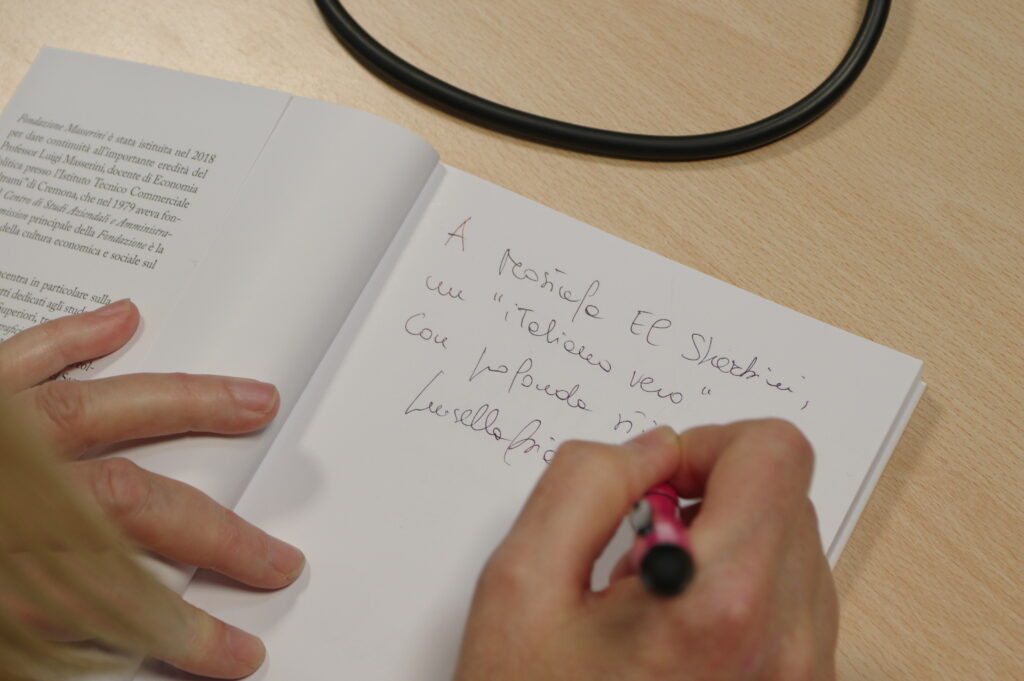 Fondazione Masserini è stata istituita nel 2018
per dare continuità all'importante eredità del
Professor Luigi Masserini, docente di Economia
olitica presso l'Istituto Tecnico Commerciale
trami" di Cremona, che nel 1979 aveva fon-
Centro di Studi Aziendali e Amministra-
mission principale della Fondazione è la
della cultura economica e sociale sul
centra in particolare sulla
tti dedicati agli stud
Superiori, tr
A Mostafa El Sharbini,
un "italiano vero"
con profonda
Luisella